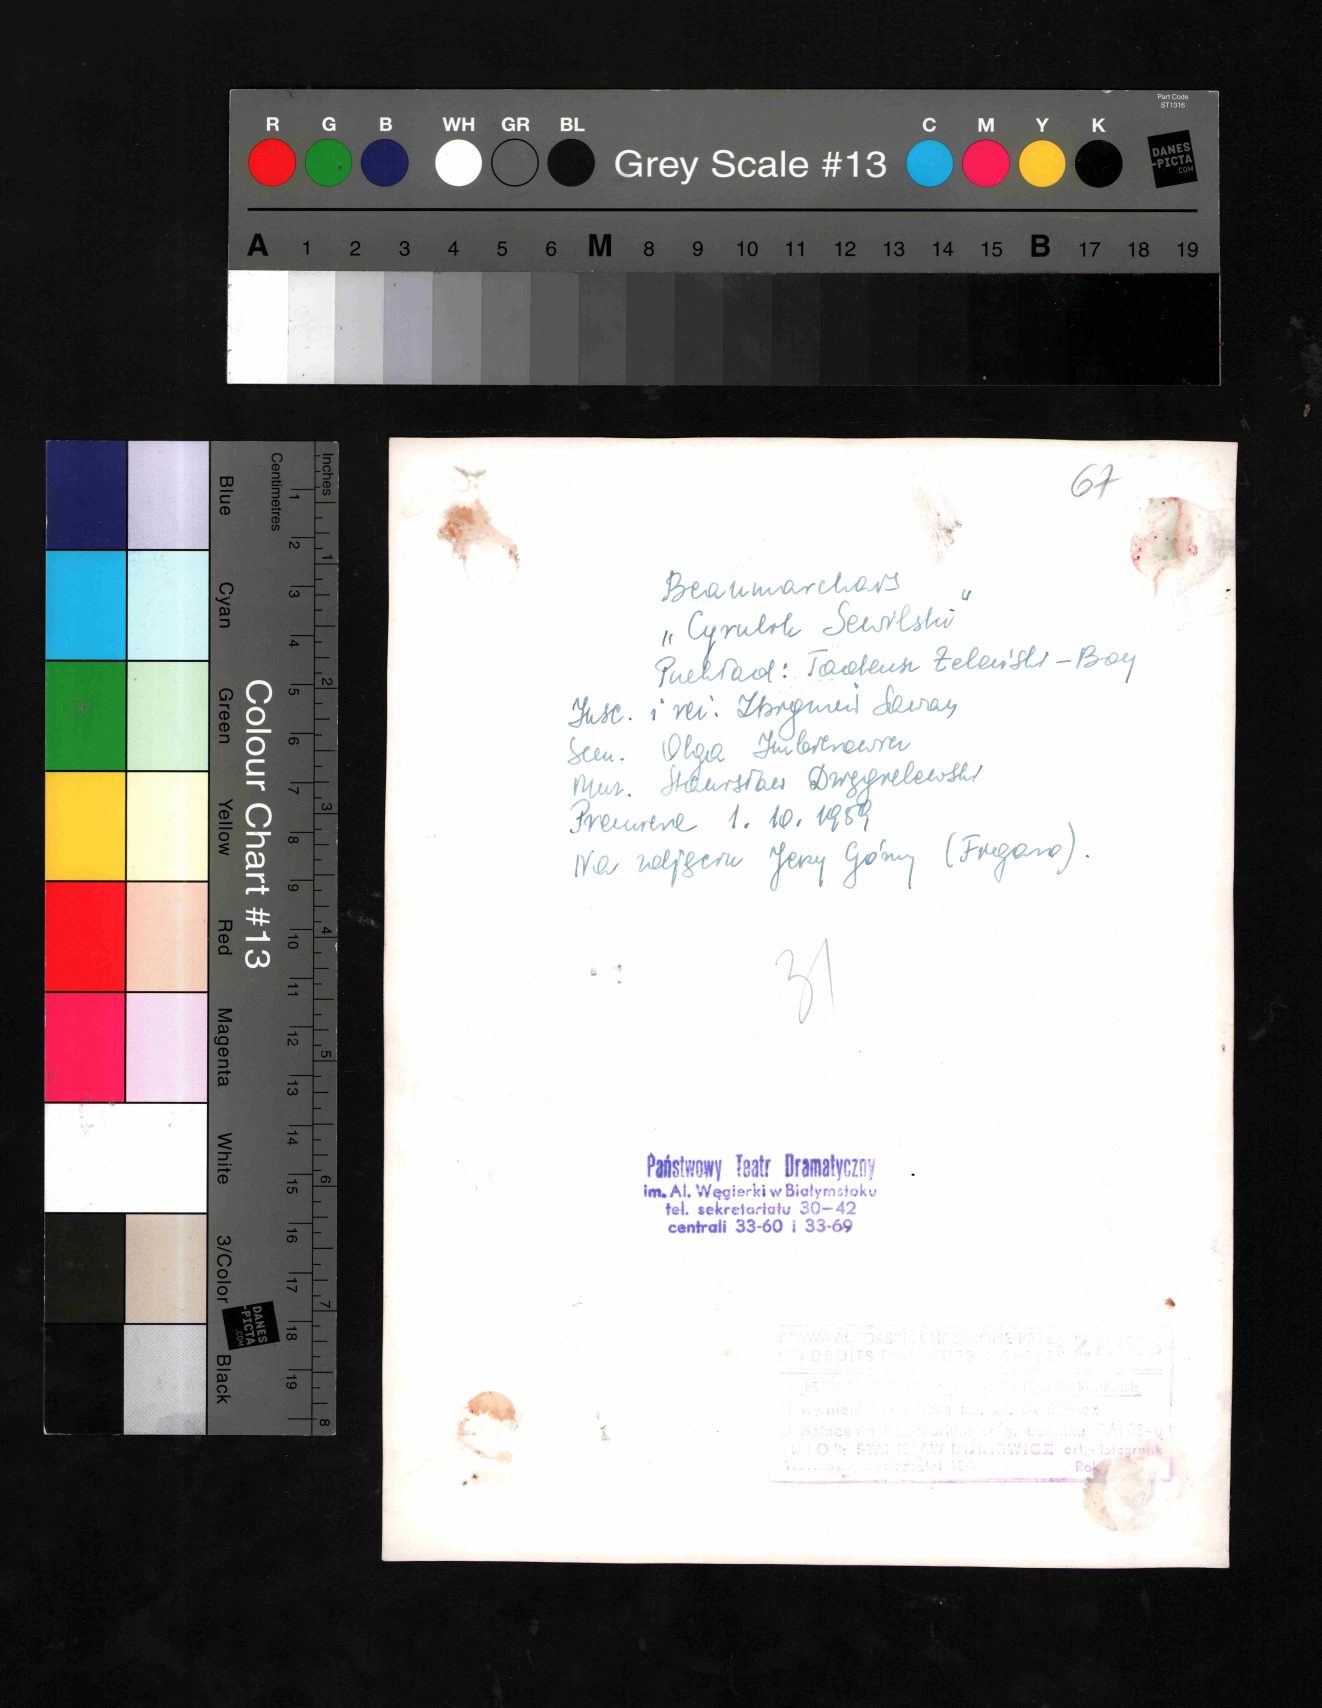 Part Code
ST1316
R G B WH GR BL Grey Scale #13 C M Y K
DANES
-PICTA
.COM
A 1 2 3 4 5 6 M 8 9 10 11 12 13 14 15 B 17 18 19
Inches
Centimetres
1 2 3 4 5 6 7 8 9 10 11 12 13 14 15 16 17 18 19
1 2 3 4 5 6 7 8
Colour Chart #13
Blue Cyan Green Yellow Red Magenta White 3/Color Black
DANES
-PICTA
.COM
67
Beaumarchais
„Cyrulik Sewilski"
Przekład: Tadeusz Żeleński-Boy
Insc. i reż. Zbigniew Sawan
Scen. Olga
Muz. Stanisław
Premiera 1. 10. 1959
Na zdjęciu Jerzy Górny (Figaro).
31
Państwowy Teatr Dramatyczny
im. Al. Węgierki w Białymstoku
tel. sekretariatu 30-42
centrali 33-60 i 33-69
PRAWA PRZEZ
LES DROITS
STANISŁAW art.-fotografik